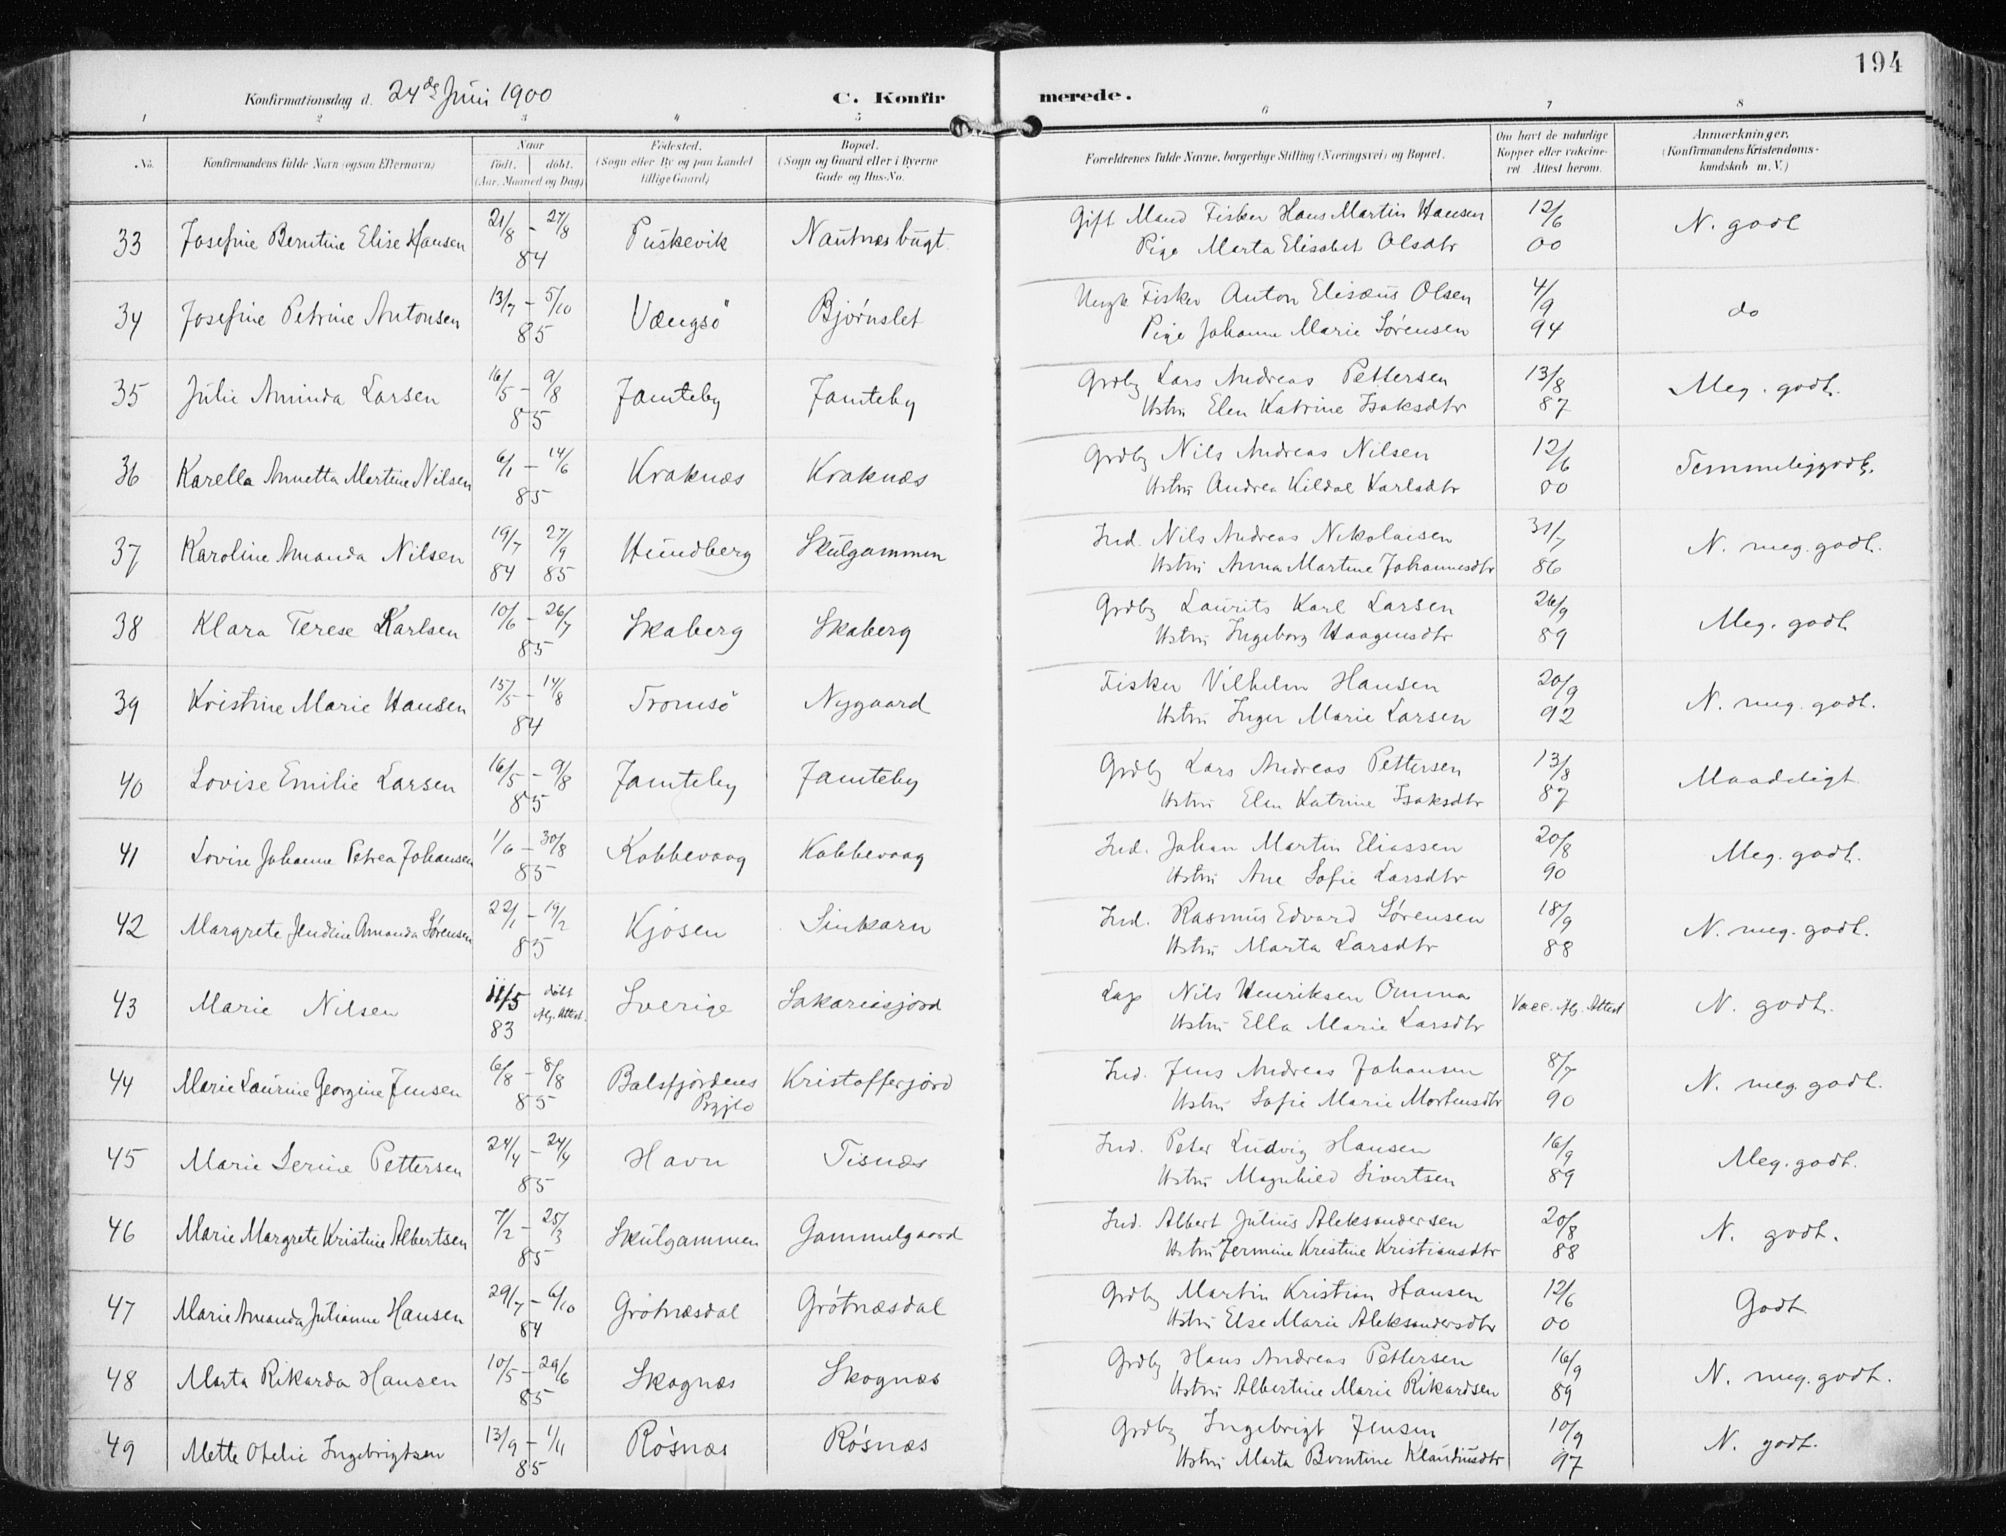 194
Konfirmationsdag d. 24de Juni 1900 C. Konfirmerede.
1 2 3 4 5 6 7 8
No. Konfirmandens fulde Navn (ogsaa Efternavn) Naar født, døbt. (Aar, Maaned og Dag) Fødested. (Sogn eller By og paa Landet tillige Gaard) Bopæl. (Sogn og Gaard eller i Byerne Gade og Hus-No. Forældrenes fulde Navne, borgerlige Stilling (Næringsvei) og Bopæl. Om havt de naturlige Kopper eller vakcineret. Attest herom. Anmærkninger. (Konfirmandens Kristendomskundskab m. V.)
33 Josefine Berntine Elise Hansen 21/8 - 27/8 84 Puskevik Nautnæsbugt Gift Mand Fisker Hans Martin Hansen 12/6 N. godt
Pige Marta Elisabet Olsdtr 00
34 Josefine Petrine Antonsen 13/7 - 5/10 85 Vængsö Bjørnslet Ungk Fisker Anton Elisæus Olsen 4/9 do
Pige Johanna Marie Sørensen 94
35 Julie Aminda Larsen 16/5 - 9/8 85 Jamteby Jamteby Grdbg Lars Andreas Pettersen 13/8 Meg. godt.
Ustru Elen Katrine Isaksdtr 87
36 Karella Annetta Martine Nilsen 6/1 - 14/6 85 Kraknæs Kraknæs Grdbg Nils Andreas Nilsen 12/6 Temmeliggodt.
Ustru Andrea Kildal Karlsdtr 00
37 Karoline Amanda Nilsen 19/7 84 27/9 85 Hundberg Skulgammen Ind. Nils Andreas Nikolaisen 31/7 N. meg. godt.
Ustru Anna Martine Johannesdtr 86
38 Klara Terese Karlsen 10/6 - 26/7 85 Skaberg Skaberg Grdbg Laurits Karl Larsen 26/9 Meg. godt
Ustru Ingeborg Haagensdtr 89
39 Kristine Marie Hansen 15/5 - 14/8 84 Tromsö Nygaard Fisker Vilhelm Hansen 20/9 N. meg. godt.
Ustru Inger Marie Larsen 92
40 Lovise Emilie Larsen 16/5 - 9/8 85 Jamteby Jamteby Grdbg Lars Andreas Pettersen 13/8 Maadeligt
Ustru Elen Katrine Isaksdtr 87
41 Lovise Johanne Petrea Johansen 1/6 - 30/8 85 Kobbevaag Kobbevaag Ind. Johan Martin Eliassen 20/8 Meg. godt.
Ustru Ane Sofie Larsdtr 90
42 Margrete Jendine Amanda Sørensen 22/1 - 19/2 85 Kjosen Sinkarn Ind. Rasmus Edvard Sørensen 18/9 N. meg. godt.
Ustru Marta Larsdtr 88
43 Marie Nilsen 11/5 83 døbt iflg. Attest. Sverige Sakariasjord Lap Nils Henriksen Omma Vacc. iflg. Attest N. godt.
Ustru Ella Marie Larsdtr
44 Marie Laurine Georgine Jensen 6/8 - 8/8 85 Balsfjordens Kristofferjord Ind. Jens Andreas Johansen 8/7 N. meg. godt.
Ustru Sofie Marie Mortensdtr 90
45 Marie Serine Pettersen 24/4 - 24/4 85 Havn Tisnæs Ind. Peter Ludvig Hansen 16/9 Meg. godt.
Ustru Magnhild Sivertsen 89
46 Marie Margrete Kristine Albertsen 7/2 - 25/3 85 Skulgammen Gammelgaard Ind. Albert Julius Aleksandersen 20/8 N. godt.
Ustru Jermine Kristine Kristiansdtr 88
47 Marie Amanda Julianne Hansen 29/7 - 6/10 84 Grøtnæsdal Grøtnæsdal Grdbg Martin Kristian Hansen 12/6 Godt
Ustru Else Marie Aleksandersdtr 00
48 Marta Rikarda Hansen 10/5 - 29/6 85 Skognæs Skognæs Grdbg Hans Andreas Pettersen 16/9 N. meg. godt.
Ustru Albertine Marie Rikardsen 89
49 Mette Otelie Ingebrigtsen 13/9 - 1/11 85 Røsnæs Røsnæs Grdbg Ingebrigt Jensen 10/9 N. godt.
Ustru Marta Berntine Klaudiusdtr 97